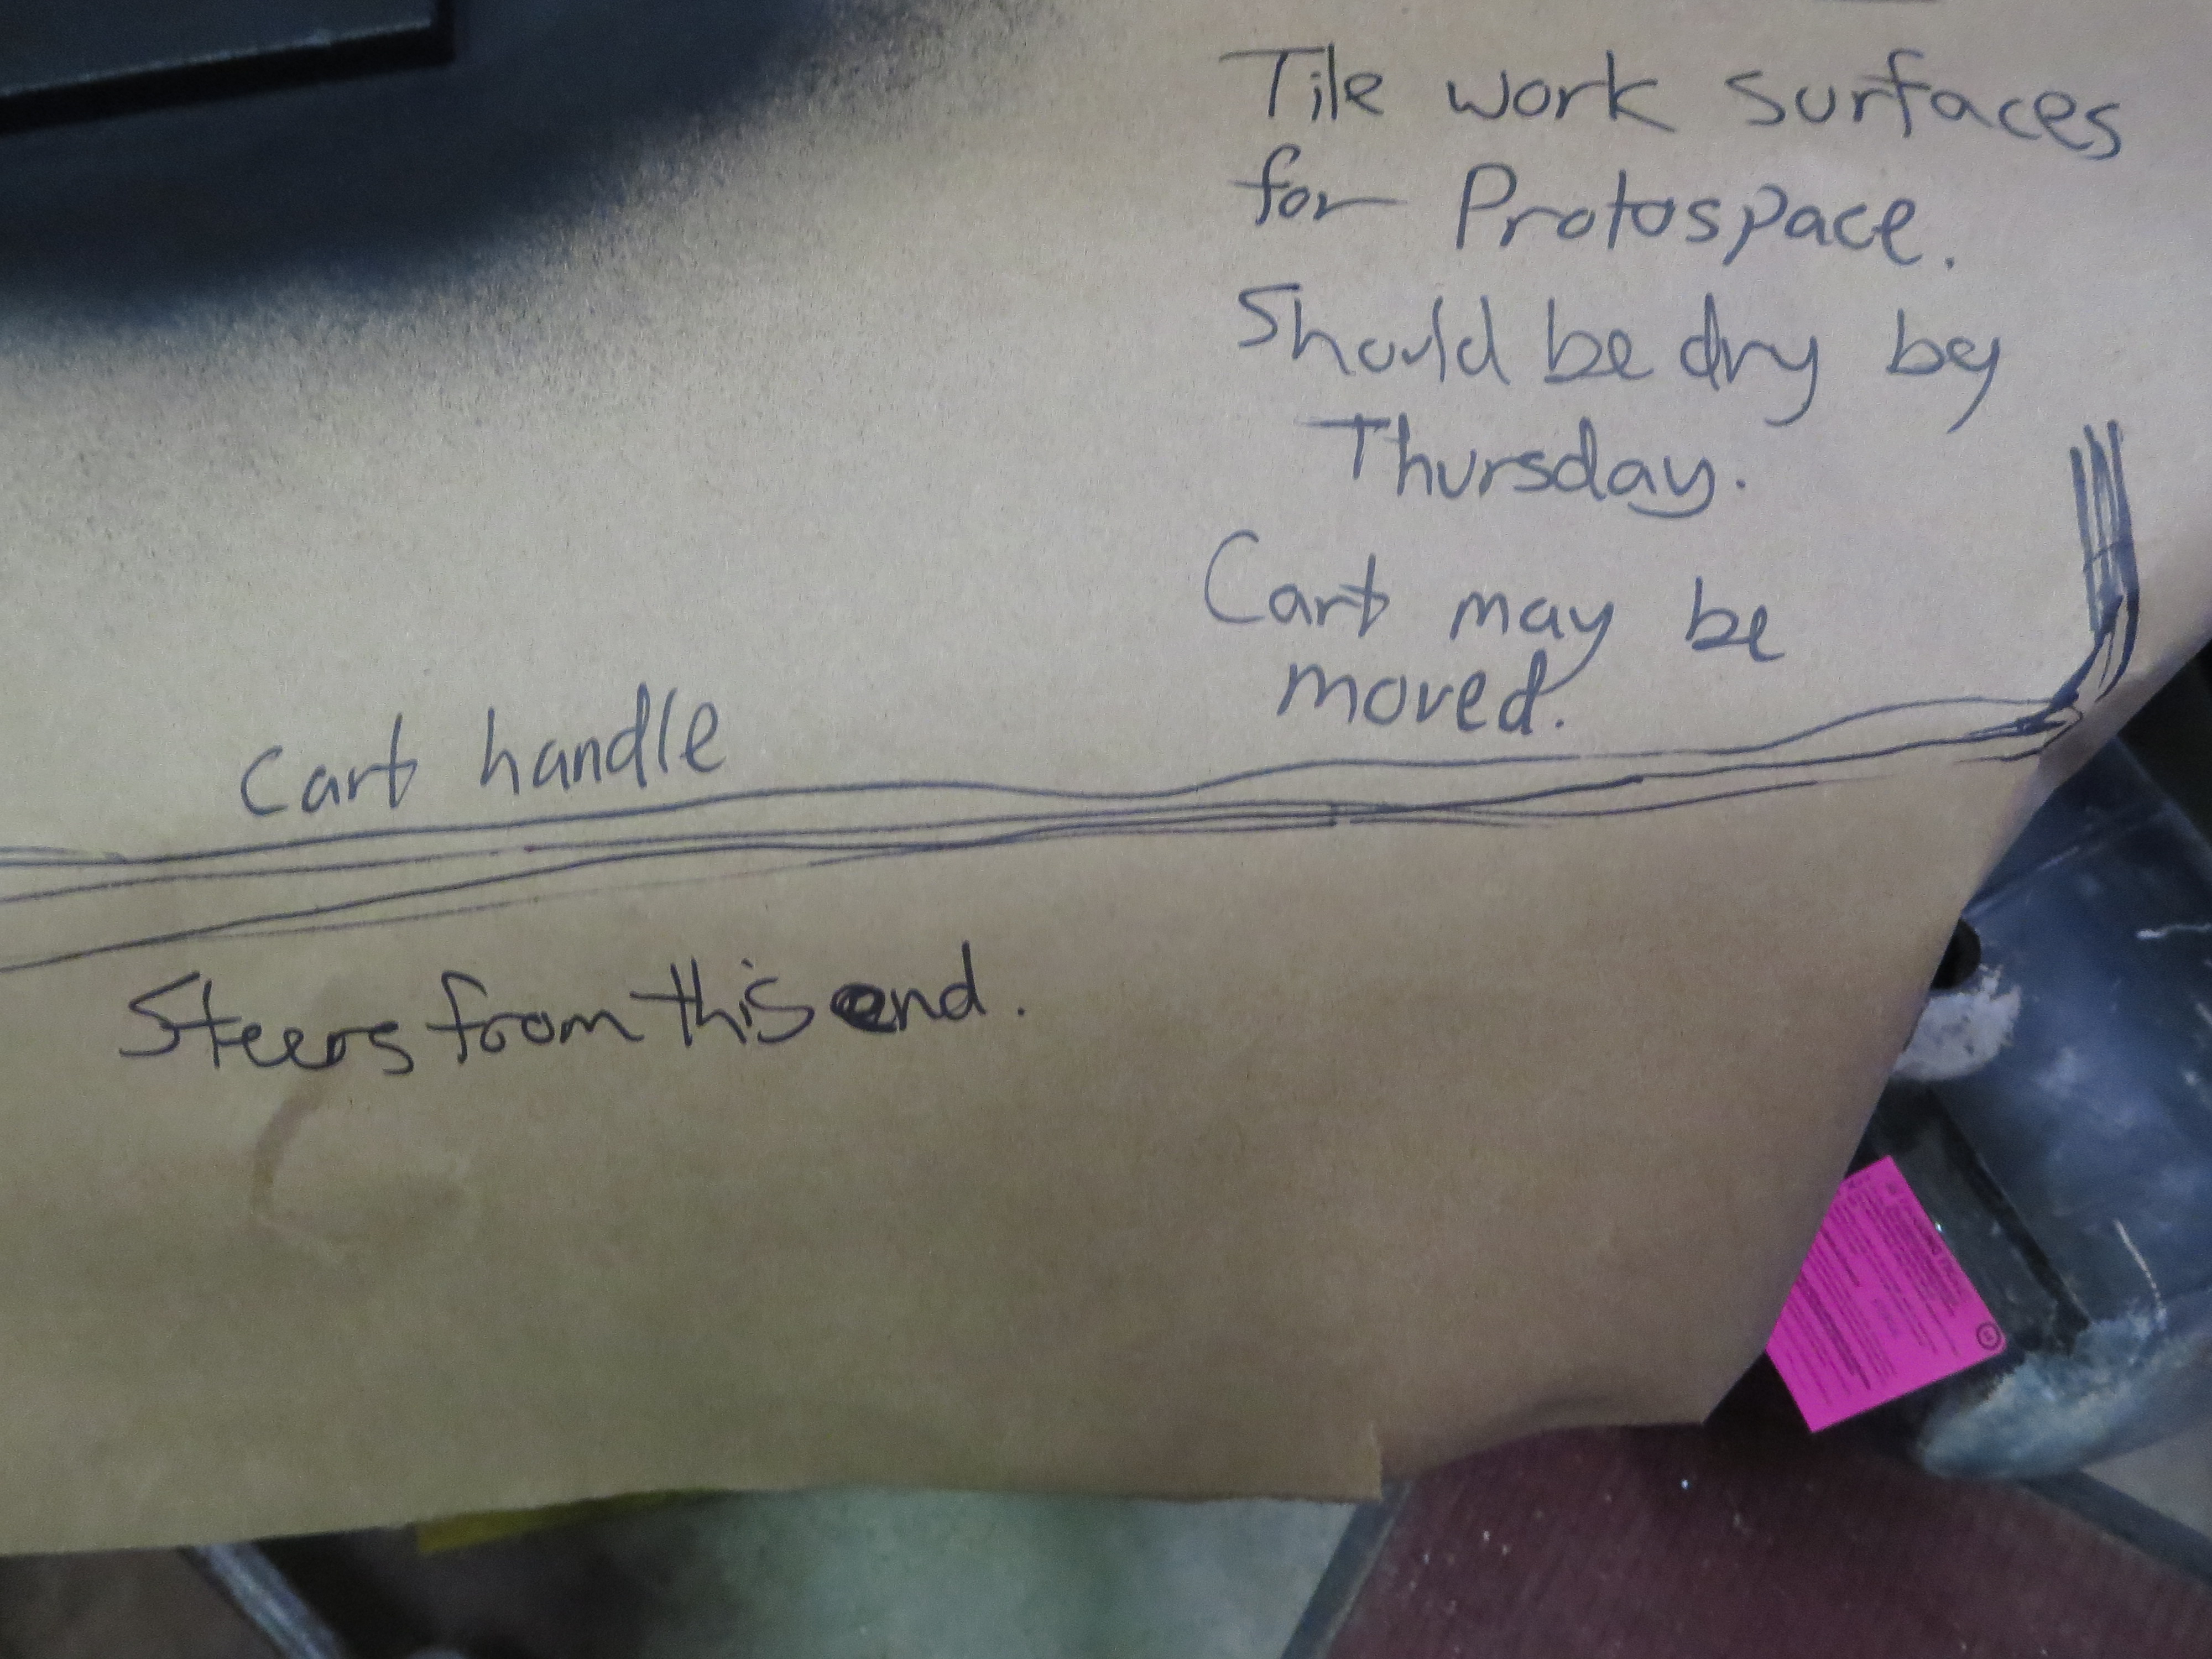 Tile work surfaces
for Protospace.
Should be dry by
Thursday.
Cart may be
moved.
Cart handle
Steers from this end.